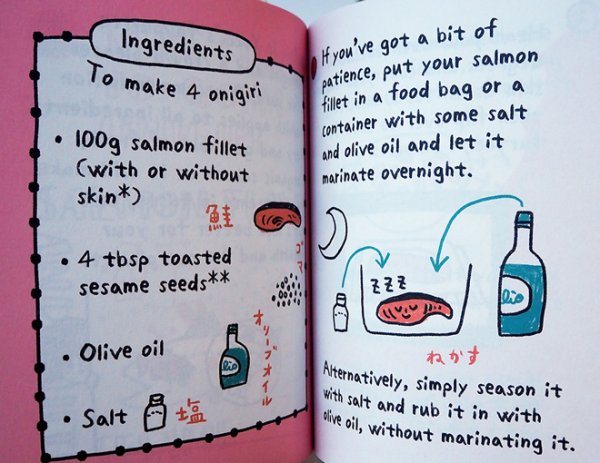 Ingredients
To make 4 onigiri
• 100g salmon fillet
(with or without
skin*)
鮭
• 4 tbsp toasted
sesame seeds**
ゴマ
• Olive oil
lio
オリーブオイル
• Salt
塩
If you've got a bit of
patience, put your salmon
fillet in a food bag or a
container with some salt
and olive oil and let it
marinate overnight.
z z z
lio
ねかす
Alternatively, simply season it
with salt and rub it in with
olive oil, without marinating it.